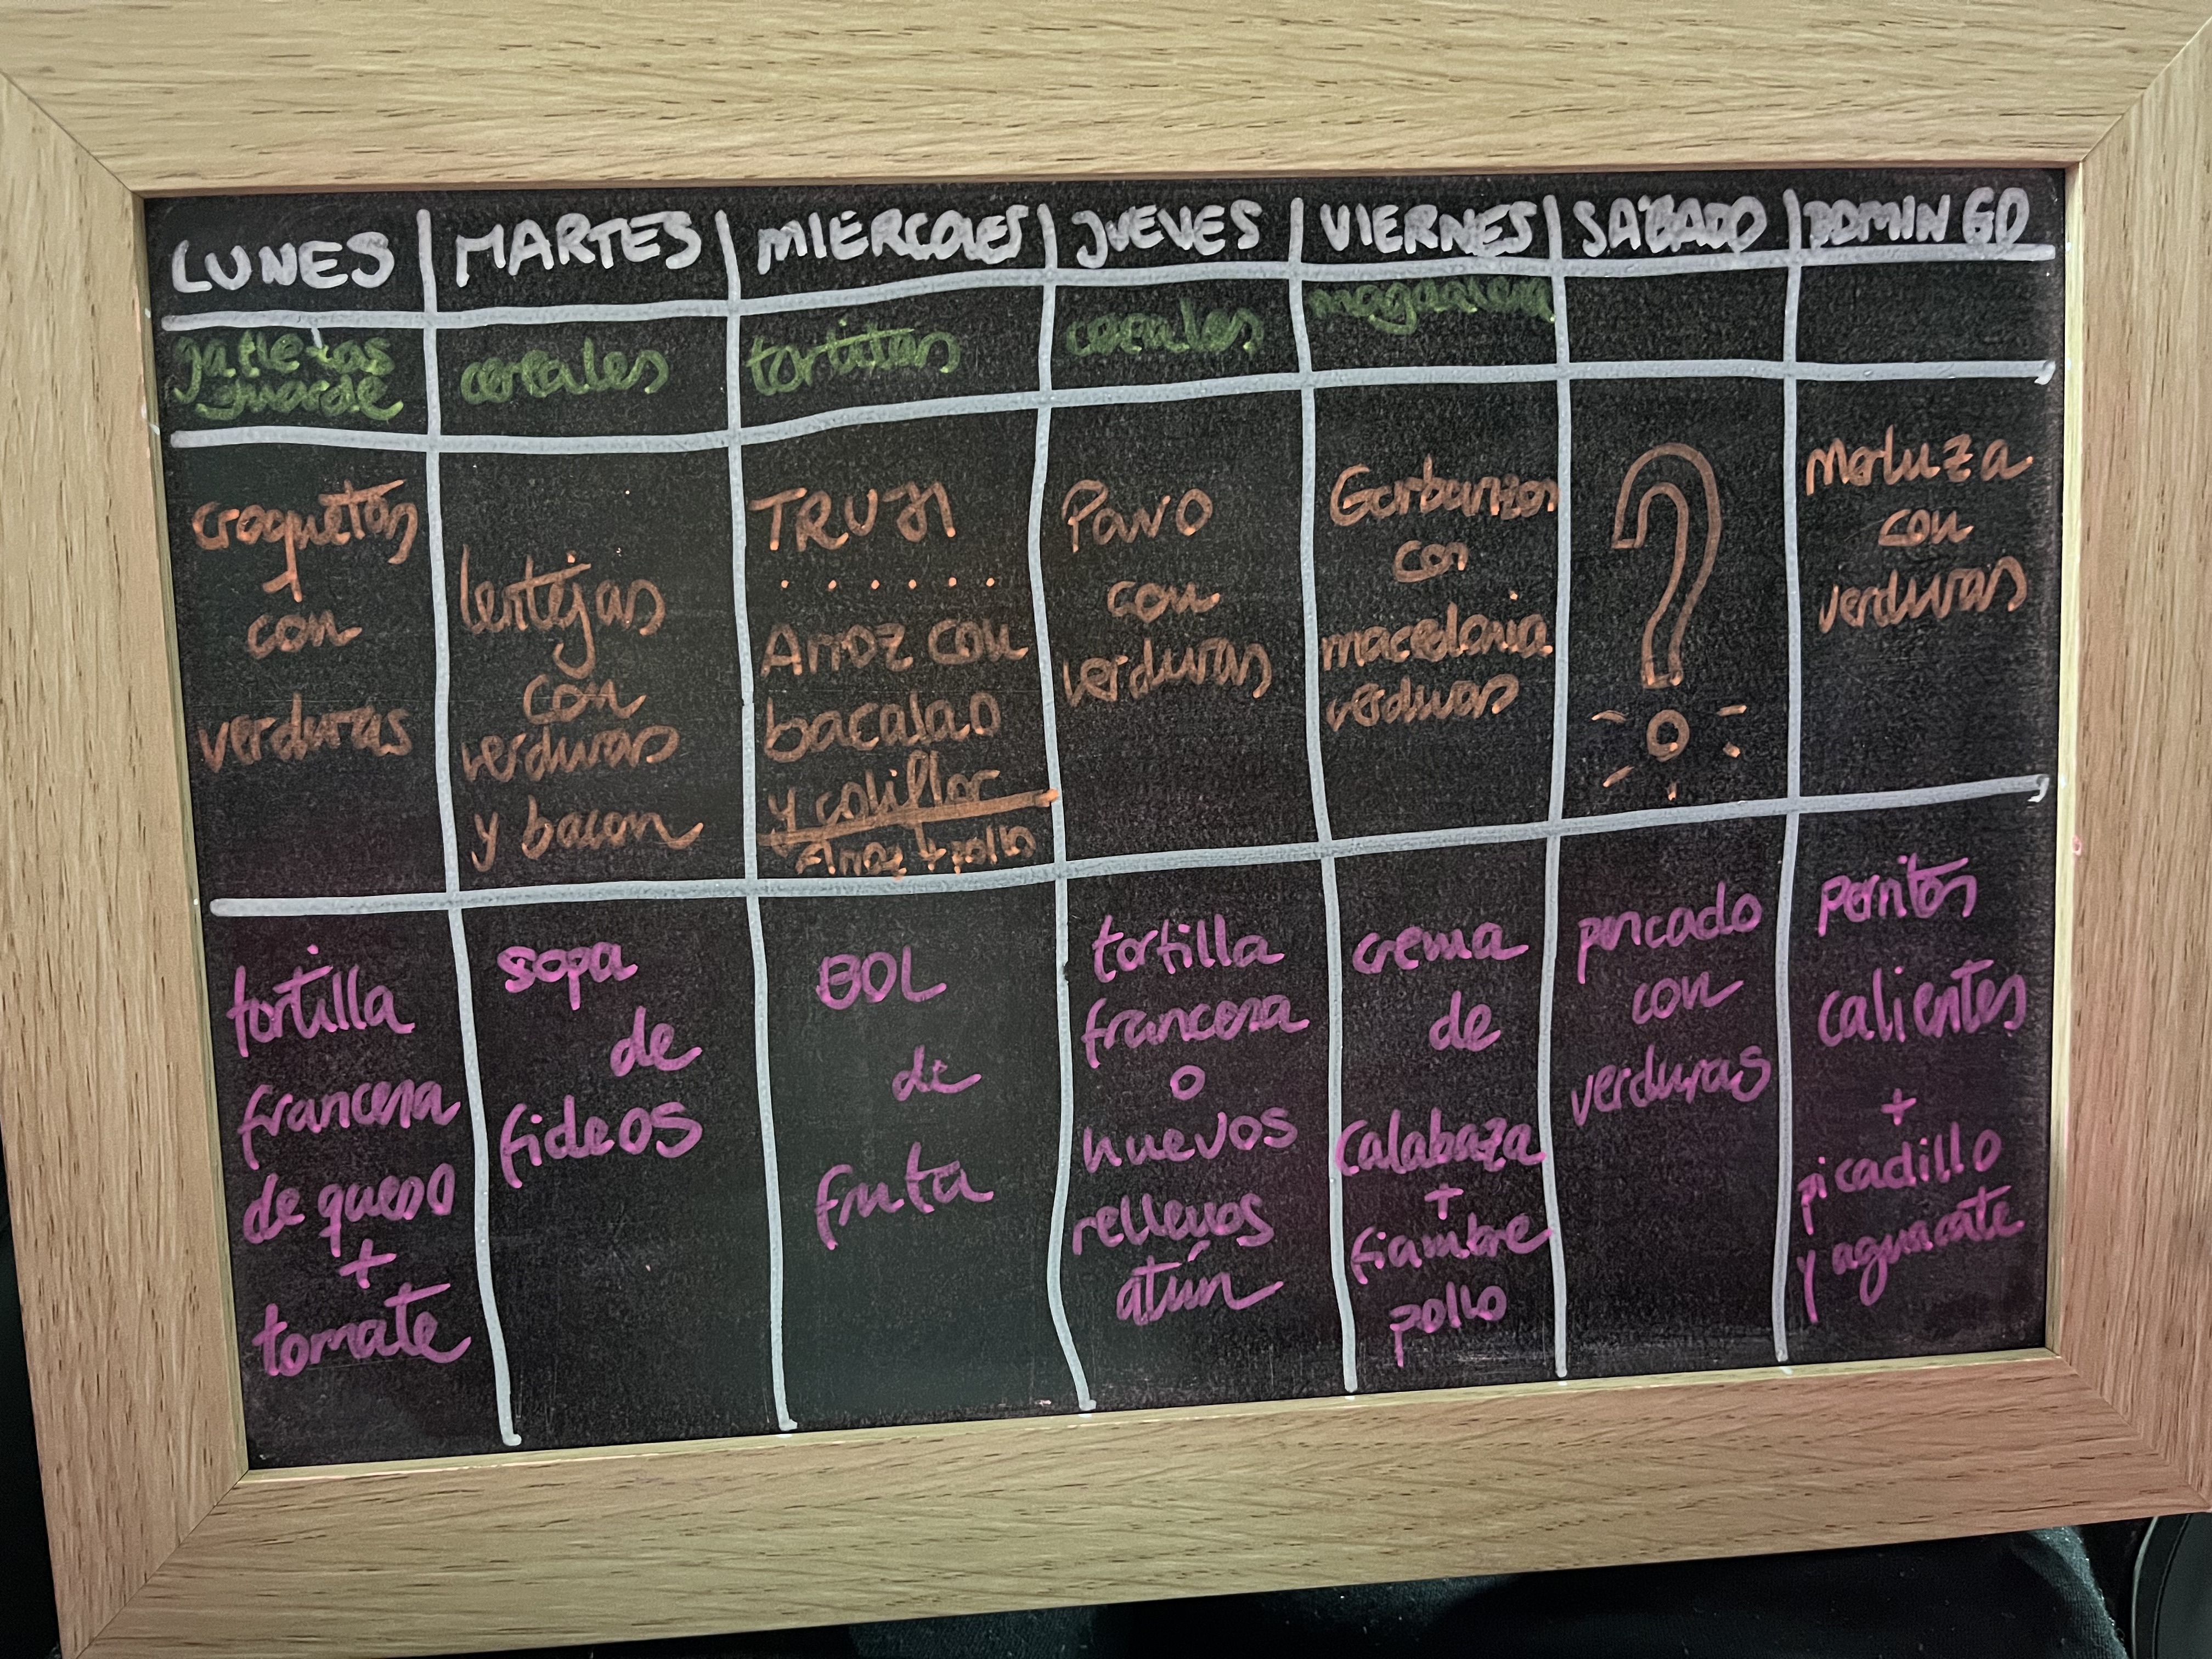 LUNES MARTES MIÉRCOLES JUEVES VIERNES SÁBADO DOMINGO
galletas
cereales
tortitas
cereales
croquetas
con
verduras
lentejas
con
verduras
y bacon
TRUJI
......
Arroz con
bacalao
y coliflor
Arroz + pollo
Pavo
con
verduras
Garbanzos
con
macedonia
verduras
?
Merluza
con
verduras
tortilla
francesa
de queso
+
tomate
sopa
de
fideos
BOL
de
fruta
tortilla
francesa
o
huevos
rellenos
atún
crema
de
calabaza
+
fiambre
pollo
pescado
con
verduras
perritos
calientes
+
picadillo
y aguacate